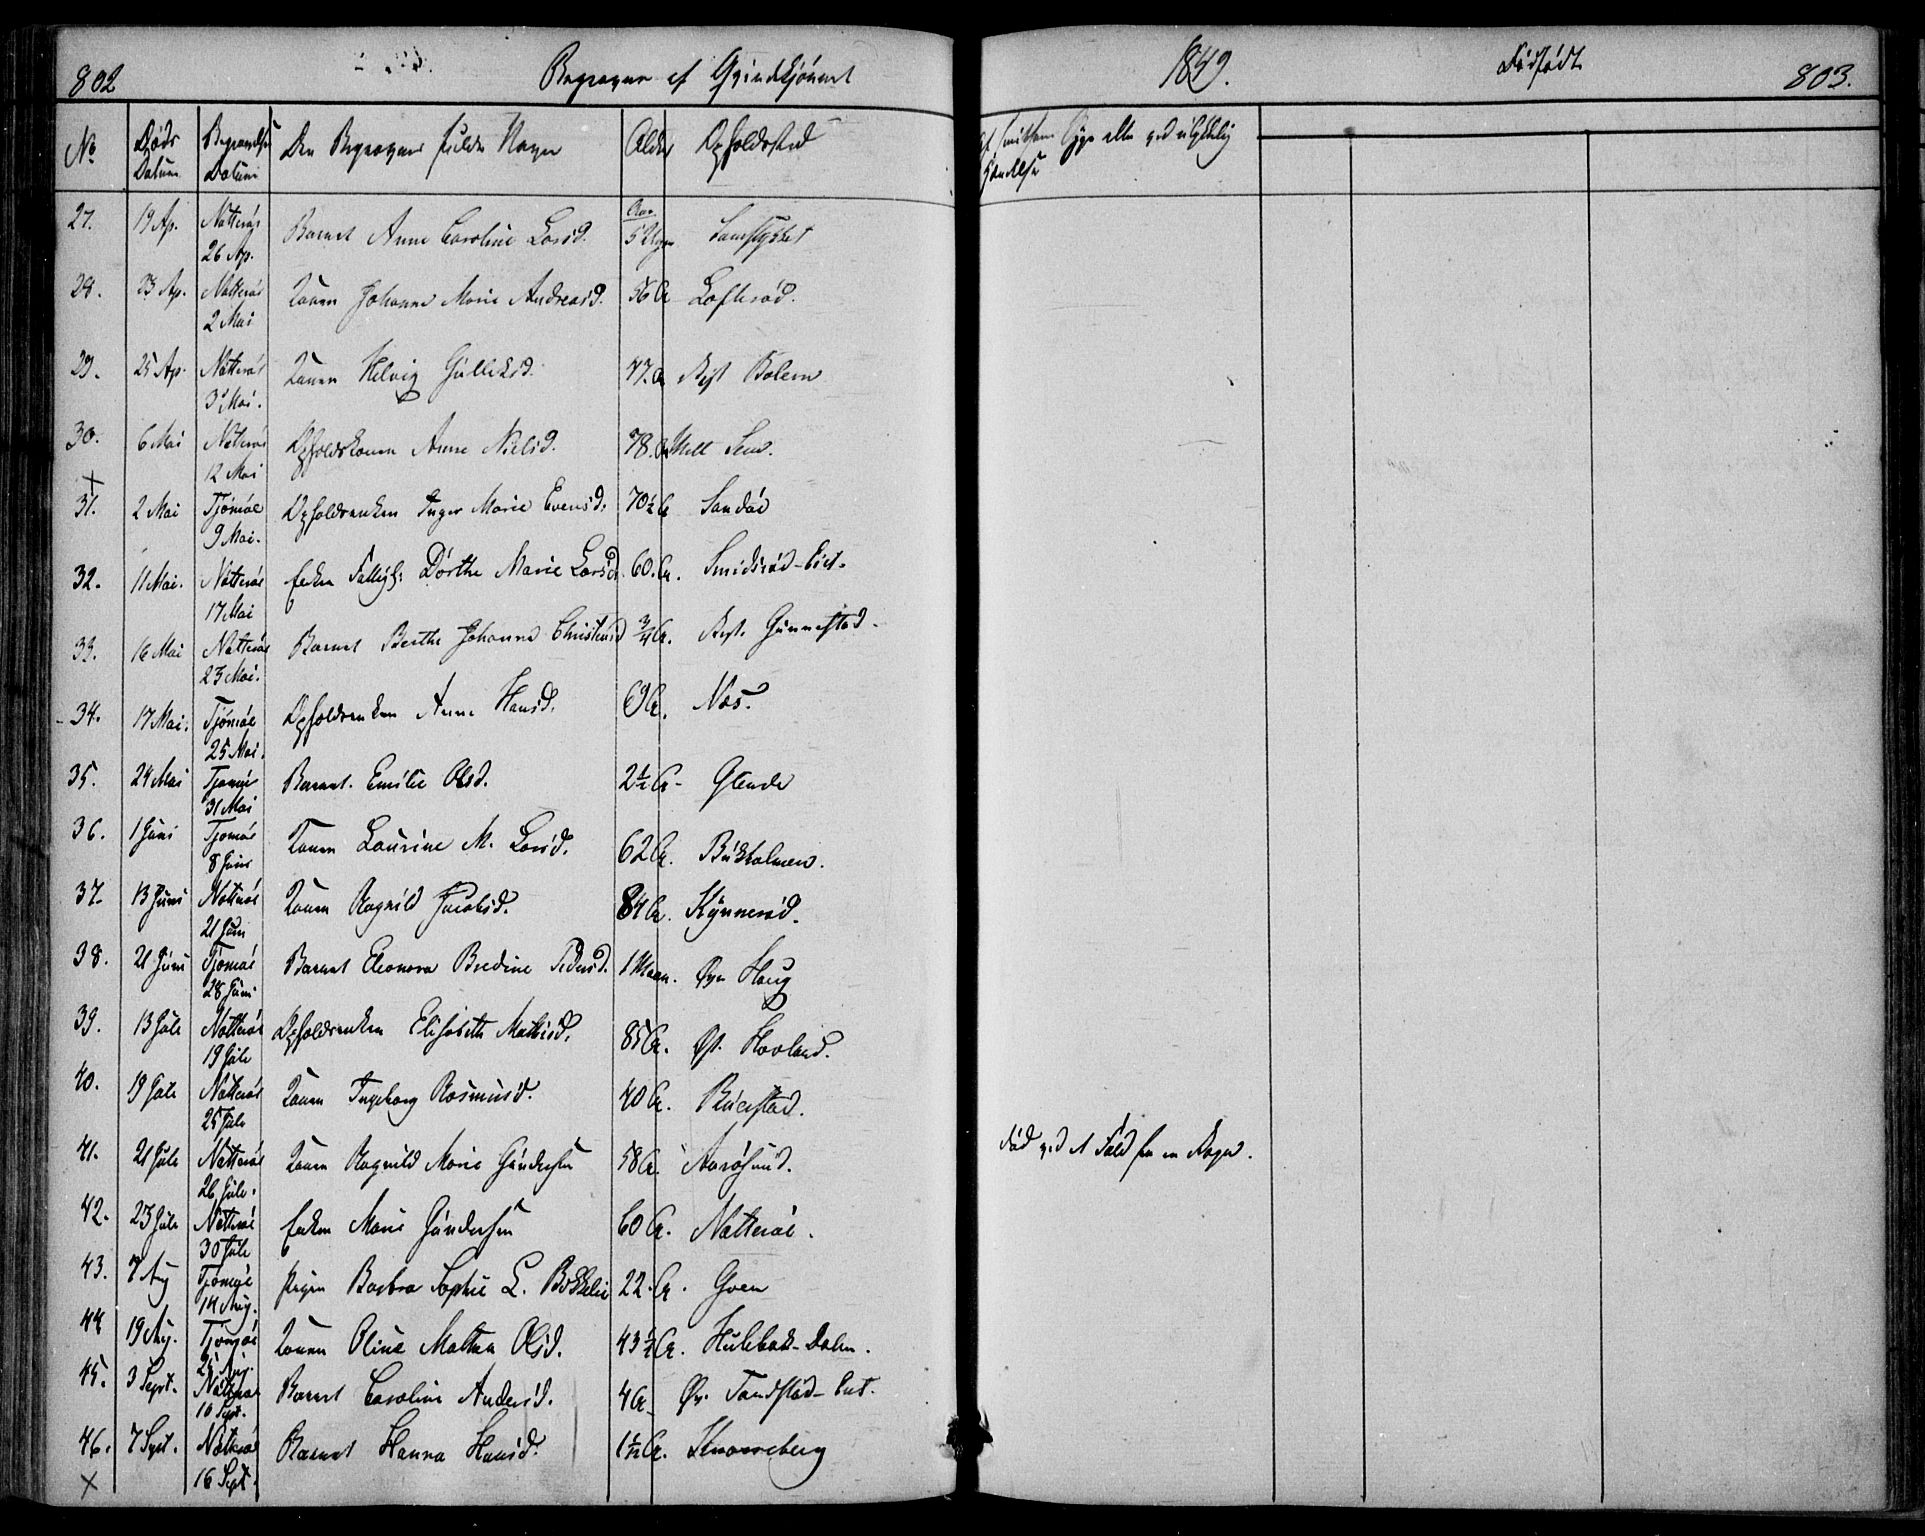 802
Begravne af Qvindkjönnet
1849.
Dødfødte
803.
No
Døds Datum
Begravelses Datum
Den Begravnes fulde Navn
Alder
Opholdssted
Af smitsom Syge eller ved ulykkelig Hændelse
27. 19 Ap. Nøtterøe 26 Ap. Barnet Anne Caroline Larsd. 5 Uger
28. 23 Ap. Nøtterøe 2 Mai Konen Johanne Marie Andreasd. 56 A Lofterød.
29. 25 Ap. Nøtterøe 3 Mai. Konen Helvig Gulliksd. 47. A Vest Bolern
30. 6 Mai Nøtterøe 12 Mai Opholdskonen Anne Nielsd. 78. A Mell Sem.
+
31. 2 Mai Tjömöe 9 Mai. Opholdsenken Inger Marie Evensd. 70½ A Sandøe
32. 11 Mai. Nøtterøe 17 Mai Enken Fattigl: Dörthe Marie Larsd. 60. A. Smidsrød-Eiet.
33. 16 Mai Nøtterøe 23 Mai. Barnet Berthe Johanne Christensd ¾ A. Vest. Gunnestad.
34. 17 Mai. Tjömöe 25 Mai. Opholdsenken Anne Hansd. 69 A. Næs.
35. 24 Mai Tjømøe 31 Mai Barnet. Emilie Olsd. 2½ A. Glende
36. 1 Juni Tjømøe 8 Juni Konen Laurine M. Larsd. 62 A. Bukholmen.
37. 13 Juni Nøtterøe 21 Juni Konen Ragnild Jacobsd. 84 A. Kynnerød.
38. 21 Juni Tjømøe 28 Juni Barnet Eleonora Bredine 1 Maan. Øvr Haug
39. 13 Jule Nøtterøe 19 Jule Opholdsenken Elisabeth Mathisd. 85 A. Øst. Hovland.
40. 19 Jule Nøtterøe 25 Jule Konen Ingeborg Rasmusd. 40 A. Buerstad.
41. 21 Jule Nøtterøe 26 Jule. Konen Ragnild Marie Gundersen 58 A. Aarøsund. Død ved et Fald fra en Vogn.
42. 23 Jule Nøtterøe 30 Jule Enken Marie Gundersen 60 A. Nøtterøe.
43. 7 Aug Tjömøe 14 Aug. Pigen Barbra Sophie L. Bokkelie 22. A. Hvem
44 19 Aug. Tjømøe 25 Aug. Konen Oline Mathea Olsd. 43½ A. Hulebak-Dalen.
45. 3 Sept. Nøtterøe 10 Sept. Barnet Caroline Andersd. 4 A. Øv. Tandstad-Eiet.
46. 7 Sept. Nøtterøe 16 Sept. Barnet Hanna Hansd. 1½ A. Knarreberg
+